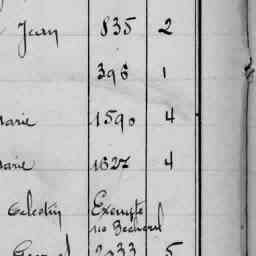 Jean 835 2
396 1
Marie 1590 4
Marie 1627 4
Celestin Exempte
2033 5